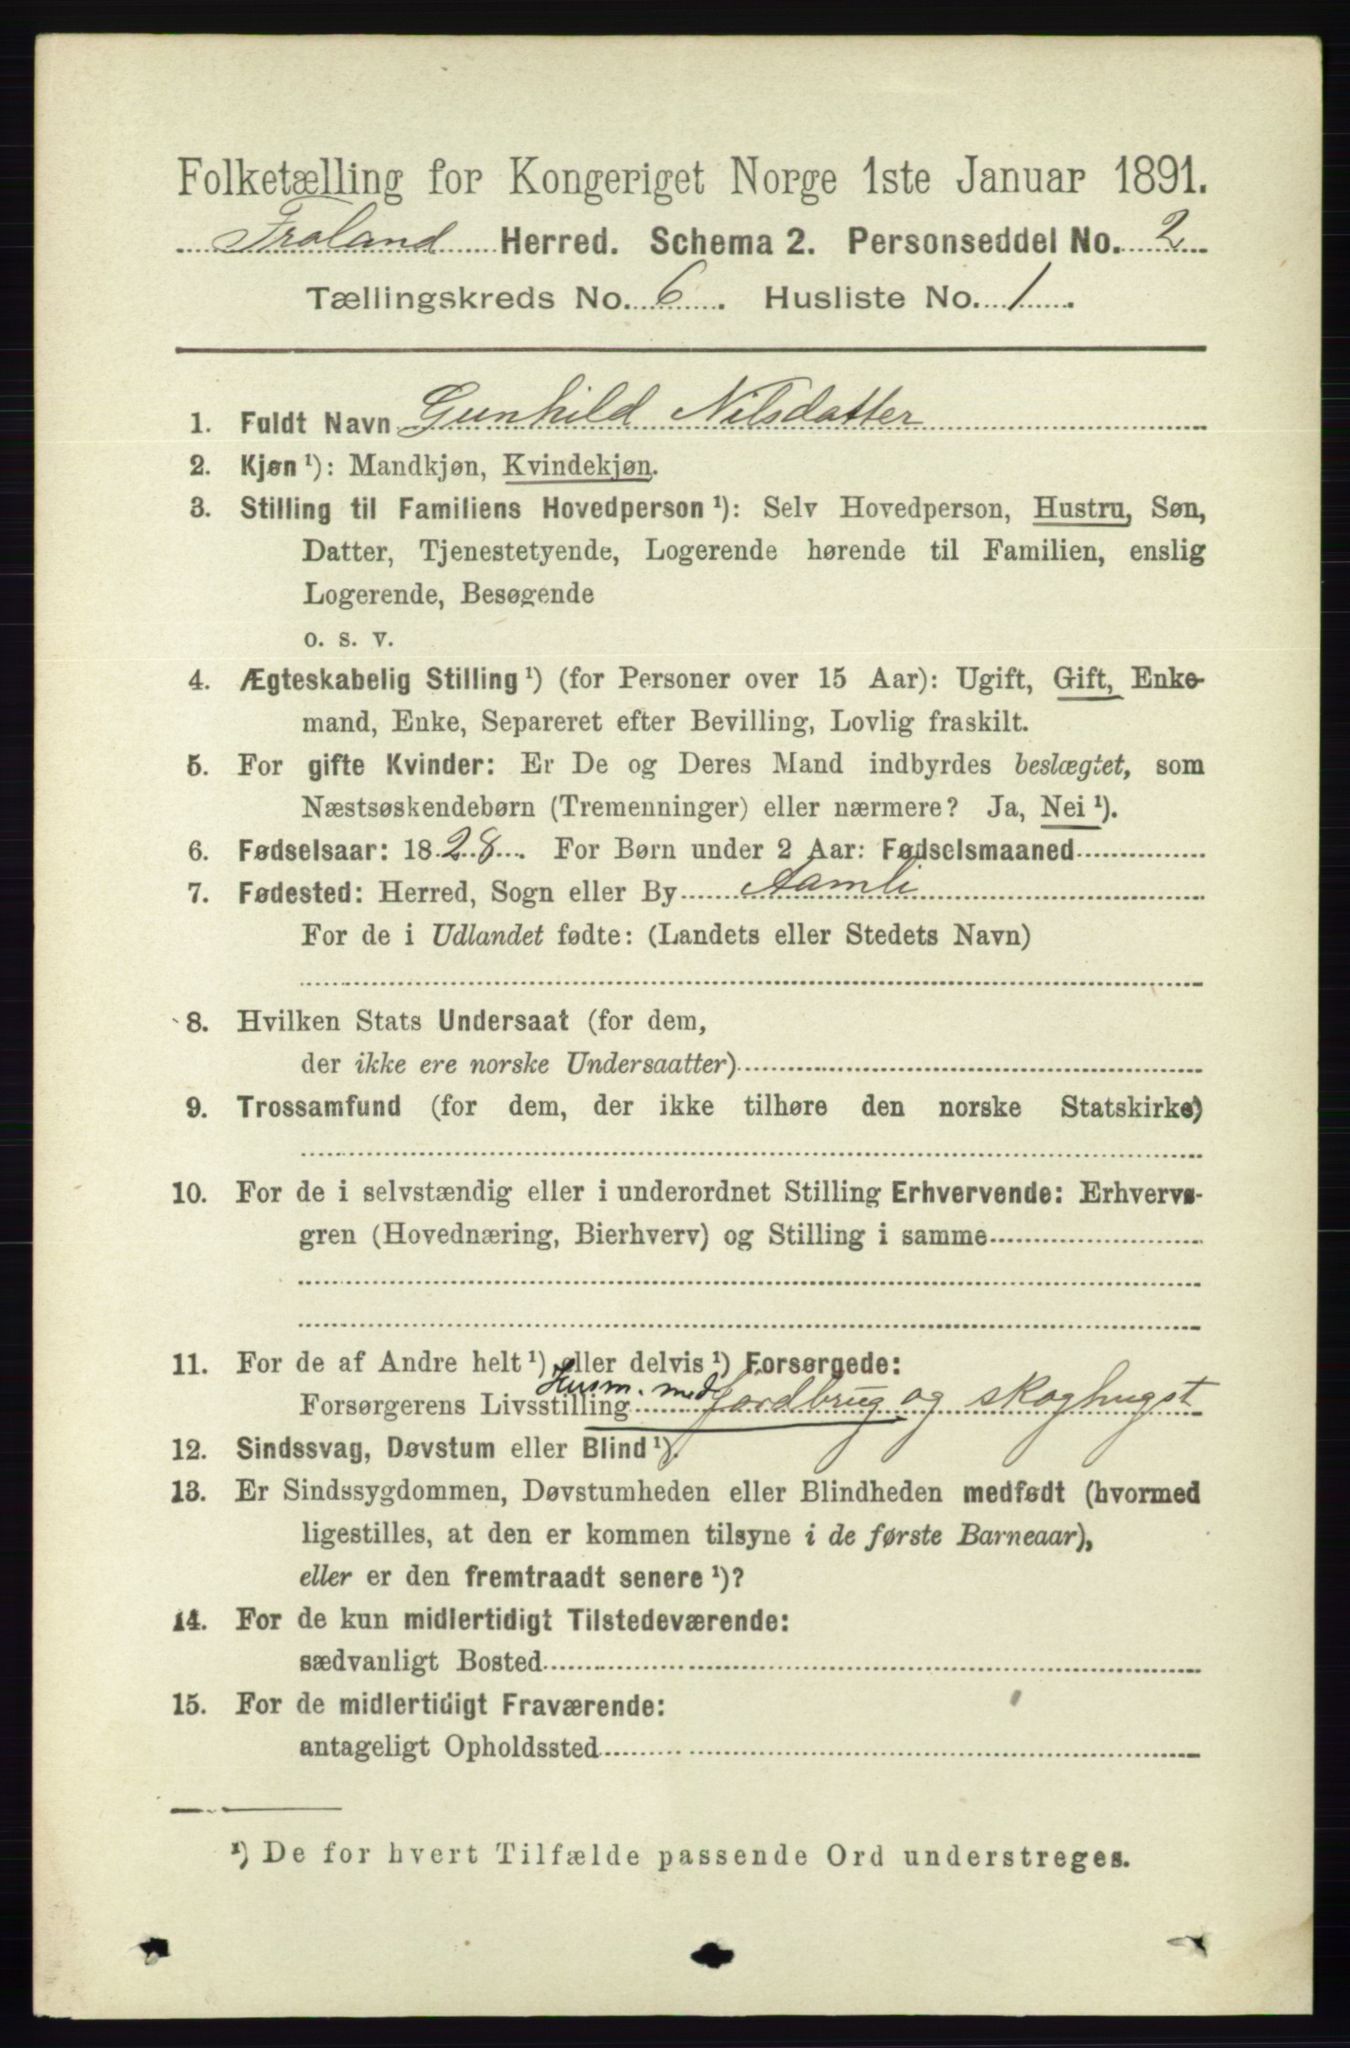 Folketælling for Kongeriget Norge 1ste Januar 1891.
Froland Herred. Schema 2. Personseddel No. 2
Tællingskreds No. 6. Husliste No. 1.
1. Fuldt Navn Gunhild Nilsdatter
2. Kjøn ¹): Mandkjøn, Kvindekjøn.
3. Stilling til Familiens Hovedperson ¹): Selv Hovedperson, Hustru, Søn,
Datter, Tjenestetyende, Logerende hørende til Familien, enslig
Logerende, Besøgende
o. s. v.
4. Ægteskabelig Stilling ¹) (for Personer over 15 Aar): Ugift, Gift, Enke-
mand, Enke, Separeret efter Bevilling, Lovlig fraskilt.
5. For gifte Kvinder: Er De og Deres Mand indbyrdes beslægtet, som
Næstsøskendebørn (Tremenninger) eller nærmere? Ja, Nei ¹).
6. Fødselsaar: 1828. For Børn under 2 Aar: Fødselsmaaned
7. Fødested: Herred, Sogn eller By Aamli
For de i Udlandet fødte: (Landets eller Stedets Navn)
8. Hvilken Stats Undersaat (for dem,
der ikke ere norske Undersaatter)
9. Trossamfund (for dem, der ikke tilhøre den norske Statskirke)
10. For de i selvstændig eller i underordnet Stilling Erhvervende: Erhvervs-
gren (Hovednæring, Bierhverv) og Stilling i samme
11. For de af Andre helt ¹) eller delvis ¹) Forsørgede:
Forsørgerens Livsstilling Husm. med jordbrug og skoghugst
12. Sindssvag, Døvstum eller Blind ¹).
13. Er Sindssygdommen, Døvstumheden eller Blindheden medfødt (hvormed
ligestilles, at den er kommen tilsyne i de første Barneaar),
eller er den fremtraadt senere ¹)?
14. For de kun midlertidigt Tilstedeværende:
sædvanligt Bosted
15. For de midlertidigt Fraværende:
antageligt Opholdssted
¹) De for hvert Tilfælde passende Ord understreges.